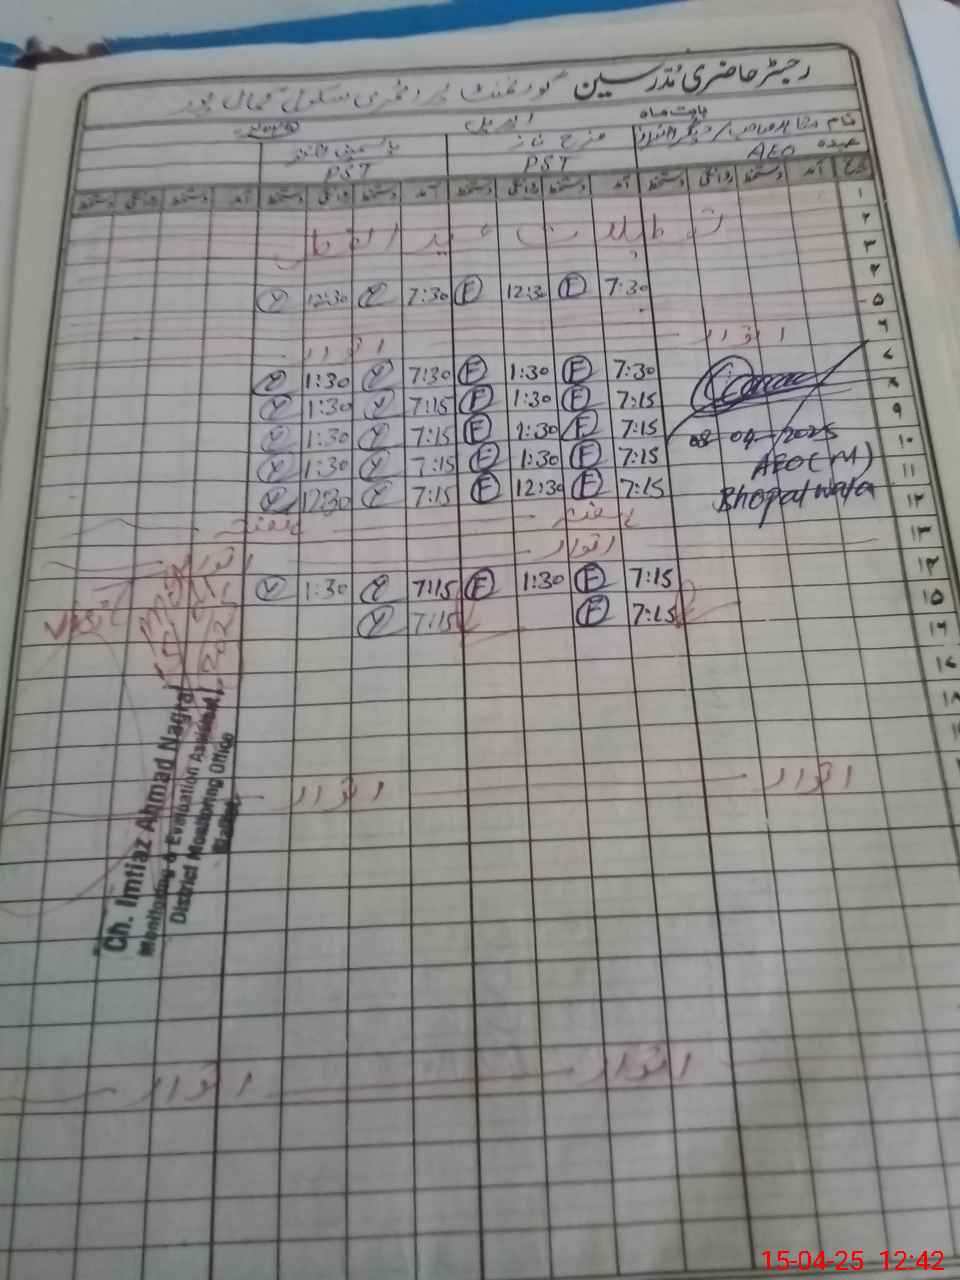 رجسٹر حاضری مدرسین گورنمنٹ پرائمری سکول جمال پور
بابت ماہ اپریل
نام
عہدہ AEO PST PST
تاریخ آمد دستخط روانگی دستخط آمد دستخط روانگی دستخط آمد دستخط روانگی دستخط آمد دستخط روانگی دستخط
۱
۲ تعطیلات عید الفطر
۳
۴
۵ 7:30 F 12:30 F 7:30 Y 12:30 Y
۶ اتوار اتوار
۷ 7:30 F 1:30 F 7:30 Y 1:30 Y
۸ 7:15 F 1:30 F 7:15 Y 1:30 Y
۹ 7:15 F 1:30 F 7:15 Y 1:30 Y
۱۰ 7:15 F 1:30 F 7:15 Y 1:30 Y
۱۱ 7:15 F 12:30 F 7:15 Y 12:30 Y
08-04-2025
AEO(M)
Bhopalwala
۱۲ ہفتہ ہفتہ
۱۳ اتوار اتوار
۱۴ 7:15 F 1:30 F 7:15 Y 1:30 Y
۱۵ 7:15 F 7:15 Y
۱۶
۱۷
۱۸
اتوار اتوار
اتوار اتوار
Ch. Imtiaz Ahmad Nagra
Monitoring & Evaluation Assistant
District Monitoring Office
15-04-25 12:42